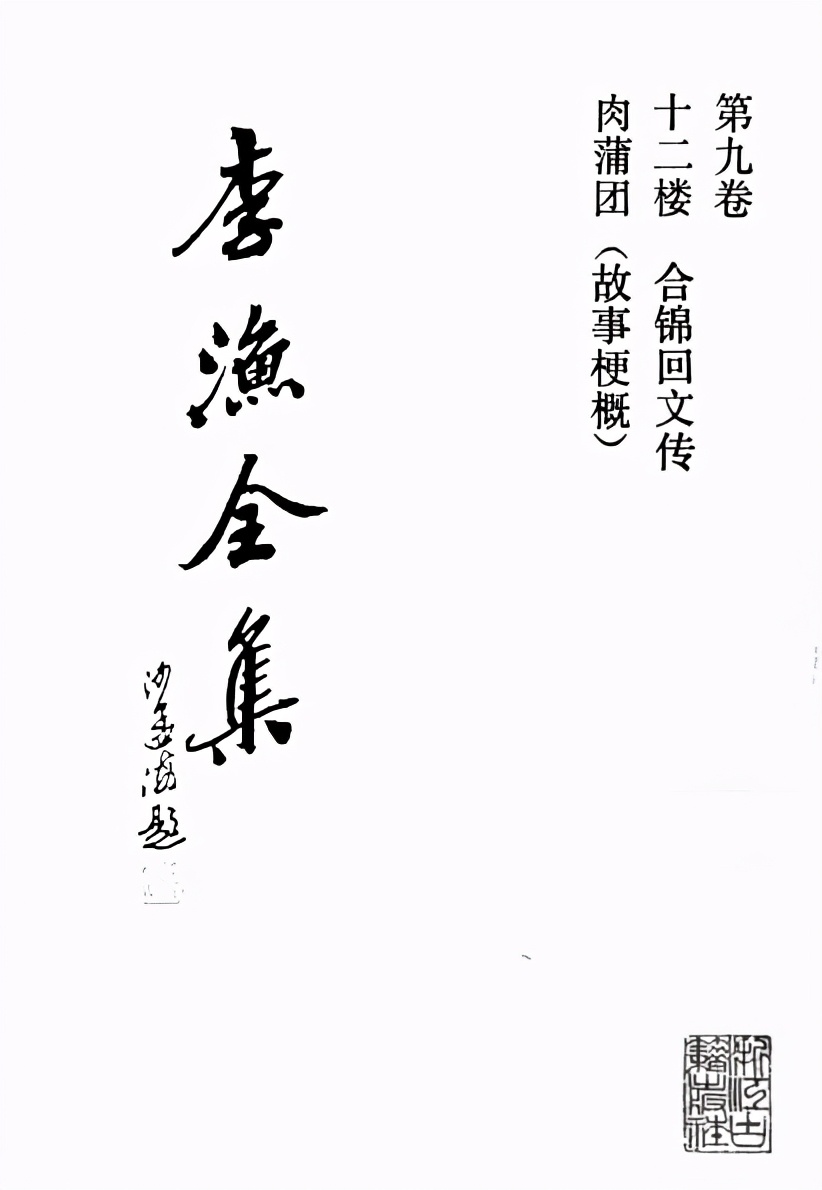 第九卷
十二楼　合锦回文传
肉蒲团（故事梗概）
李渔全集
沙孟海题
浙江古
籍出版社